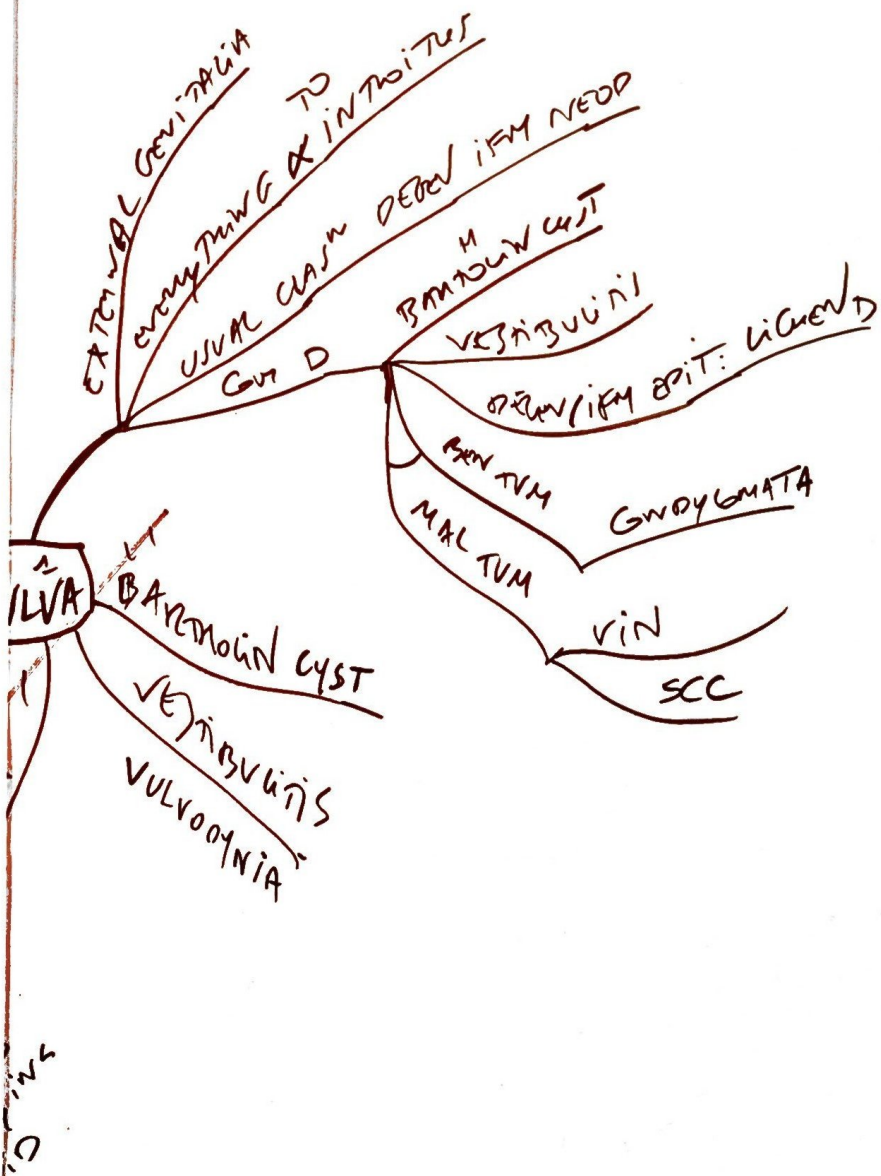 EXTERNAL GENITALIA
EVERYTHING α TO INTROITUS
USUAL CLASⁿ DEGEN IFM NEOP
D
BARTHOLIN CYST
VESTIBULITIS
DEGEN/IFM EPIT: LICHEN D
BEN TUM
GNDYGMATA
MAL TUM
VIN
SCC
ULVA
BARTHOLIN CYST
VESTIBULITIS
VULVODYNIA
ING